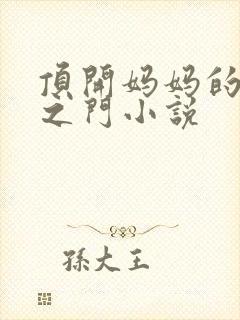 頂開妈妈的
之門小説
孫大王